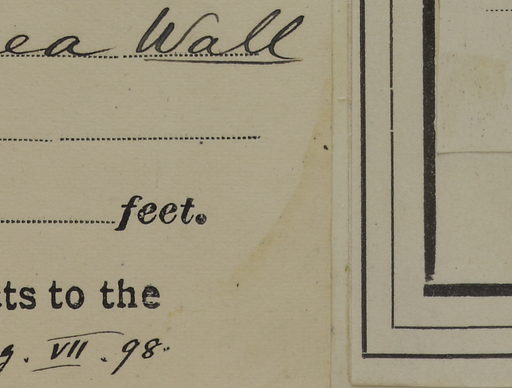 ea Wall
feet.
ts to the
g. VII. 98.